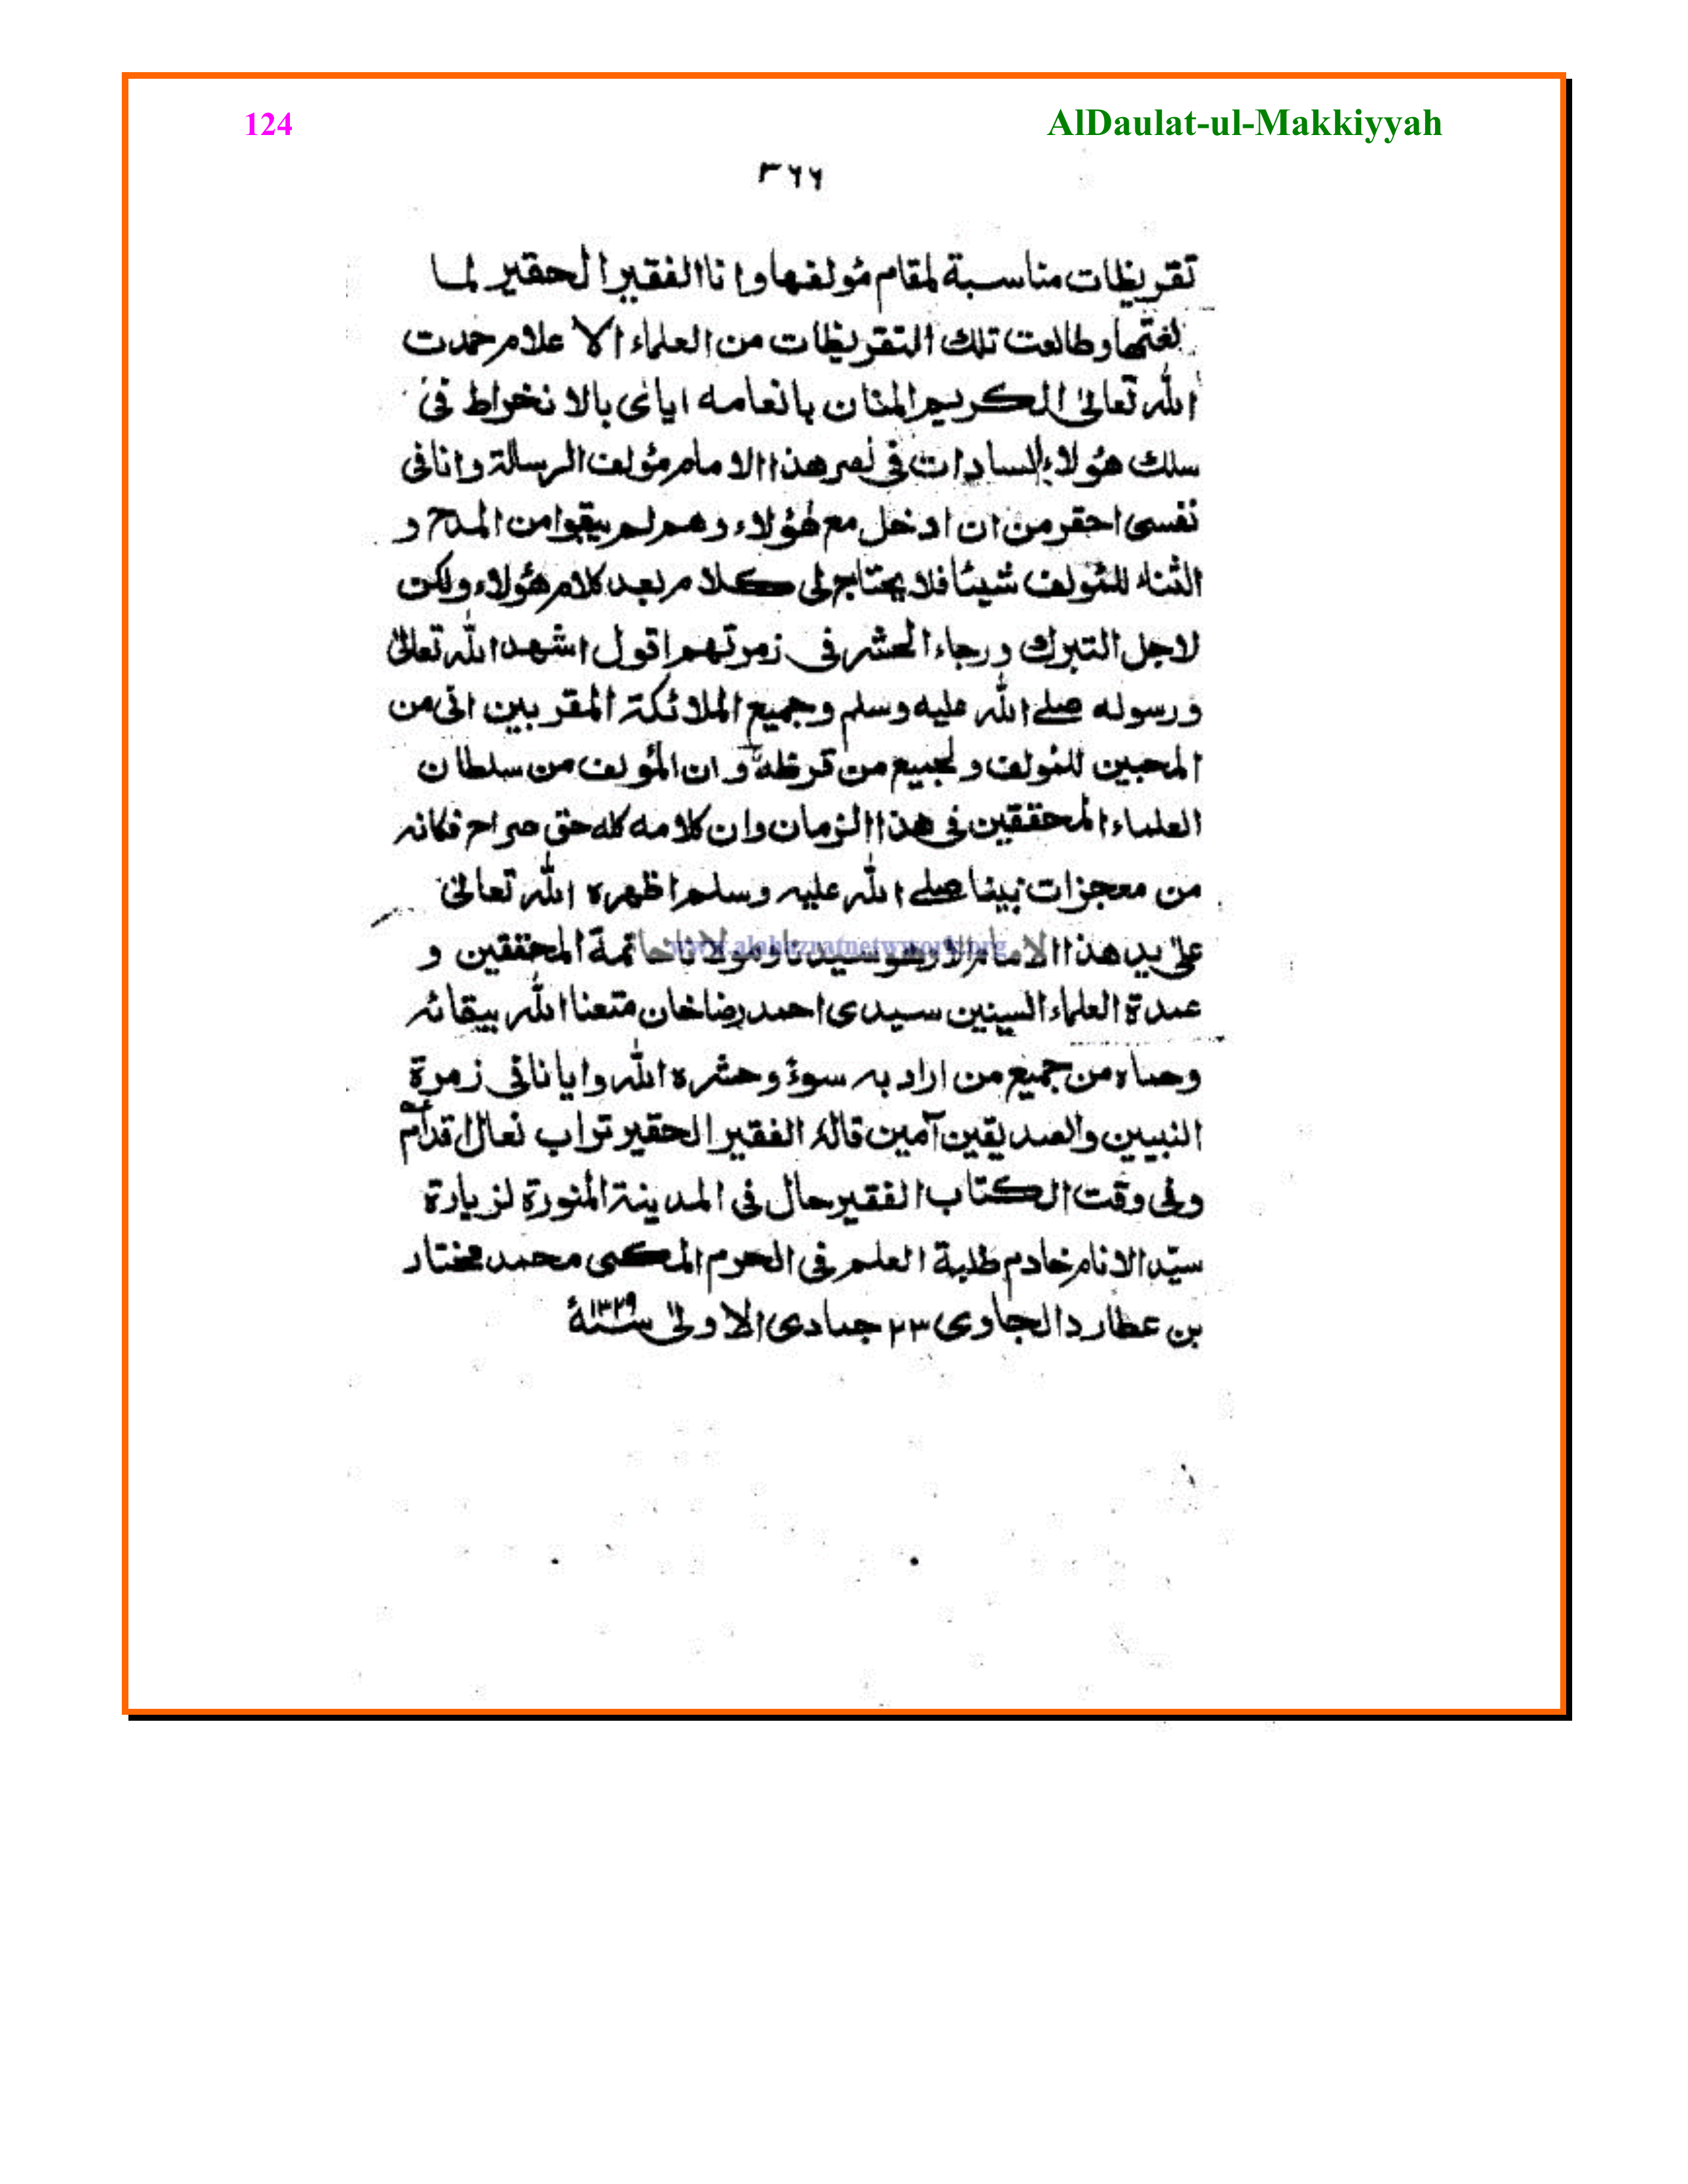 124
AlDaulat-ul-Makkiyyah
٣٦٦
تقريظات مناسبة لمقام مؤلفها وانا الفقير الحقير لما
وطالعت تلك التقريظات من العلماء الاعلام حمدت
الله تعالىٰ الكريم المنان بانعامه اياى بالانخراط فى
سلك هؤلاء السادات فى نصر هذا الامام مؤلف الرسالة وانا فى
نفسى احقر من ان ادخل مع هٰؤلاء وهم لم يبقوا من المدح و
الثناء للمؤلف شيئا فلا يحتاج لى كلام بعد كلام هؤلاء ولكن
لاجل التبرك ورجاء الحشر فى زمرتهم اقول اشهد الله تعالىٰ
ورسوله صلے الله عليه وسلم وجميع الملائكة المقربين انى من
المحبين للمؤلف ولجميع من قرظله وان المؤلف من سلطان
العلماء المحققين فى هذا الزمان وان كلامه كله حق صراح فكانه
من معجزات نبينا صلے الله عليه وسلم اظهره الله تعالىٰ
علىٰ يد هذا الامام الا وهو سيدنا ومولانا خاتمة المحققين و
www.alahazratnetwork.org
عمدة العلماء السنيين سيدى احمد رضا خان متعنا الله ببقائه
وحماه من جميع من اراد به سوءً وحشره الله وايانا فى زمرة
النبيين والصديقين آمين قاله الفقير الحقير تراب نعال اقدام
وفى وقت الكتاب الفقير حال فى المدينة المنورة لزيارة
سيّد الانام خادم طلبة العلم فى الحرم المكى محمد مختار
بن عطارد الجاوى ٢٣ جمادى الاولىٰ سنة ١٣٢٩